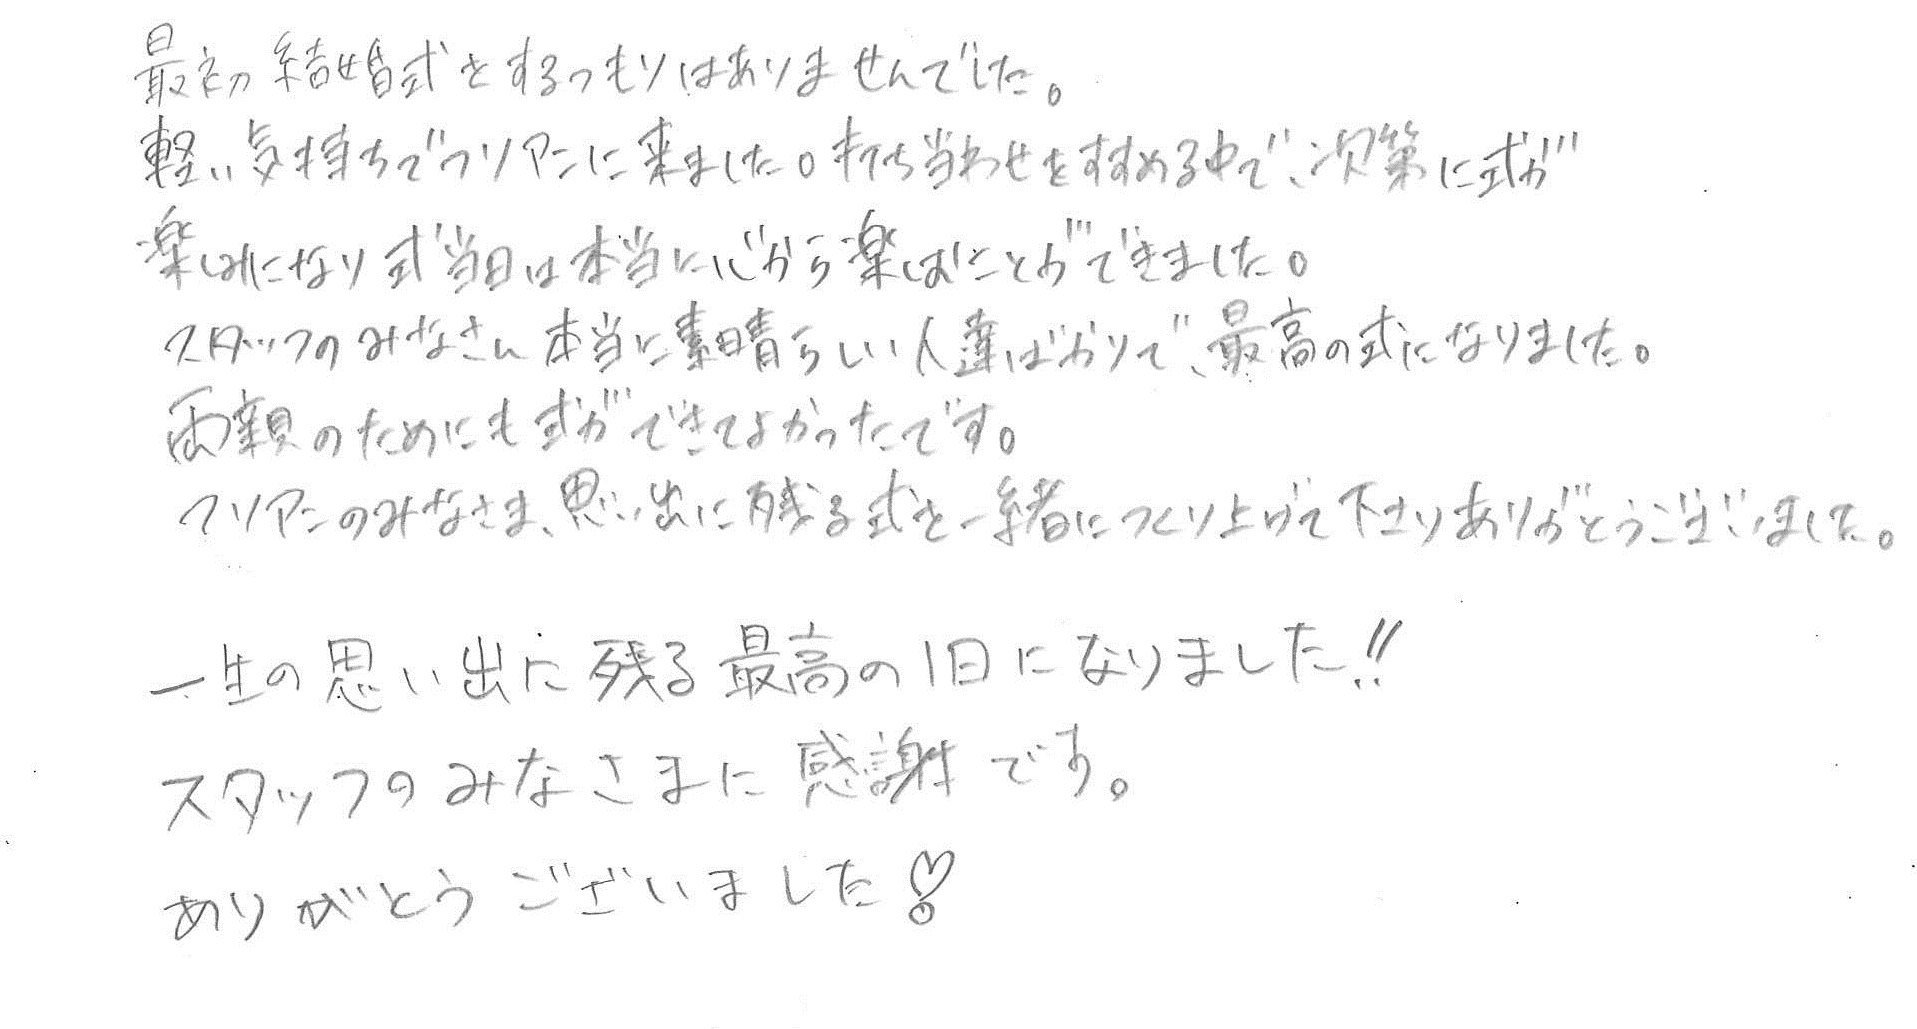 最初 結婚式をするつもりはありませんでした。
軽い気持ちでクリアンに来ました。打ち当わせをすすめる中で、次第に式が
楽しみになり式当日は本当に心から楽しむことができました。
スタッフのみなさん本当に素晴らしい人達ばかりで、最高の式になりました。
両親のためにも式ができてよかったです。
のみなさま、思い出に残る式を一緒につくり上げて下さりありがとうございました。
一生の思い出に残る最高の1日になりました!!
スタッフのみなさまに感謝です。
ありがとうございました♡